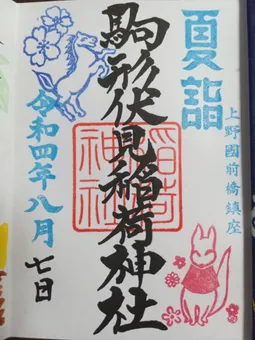 夏詣
上野國前橋鎮座
駒形伏見稲荷神社
稲荷神社
令和四年八月
七日